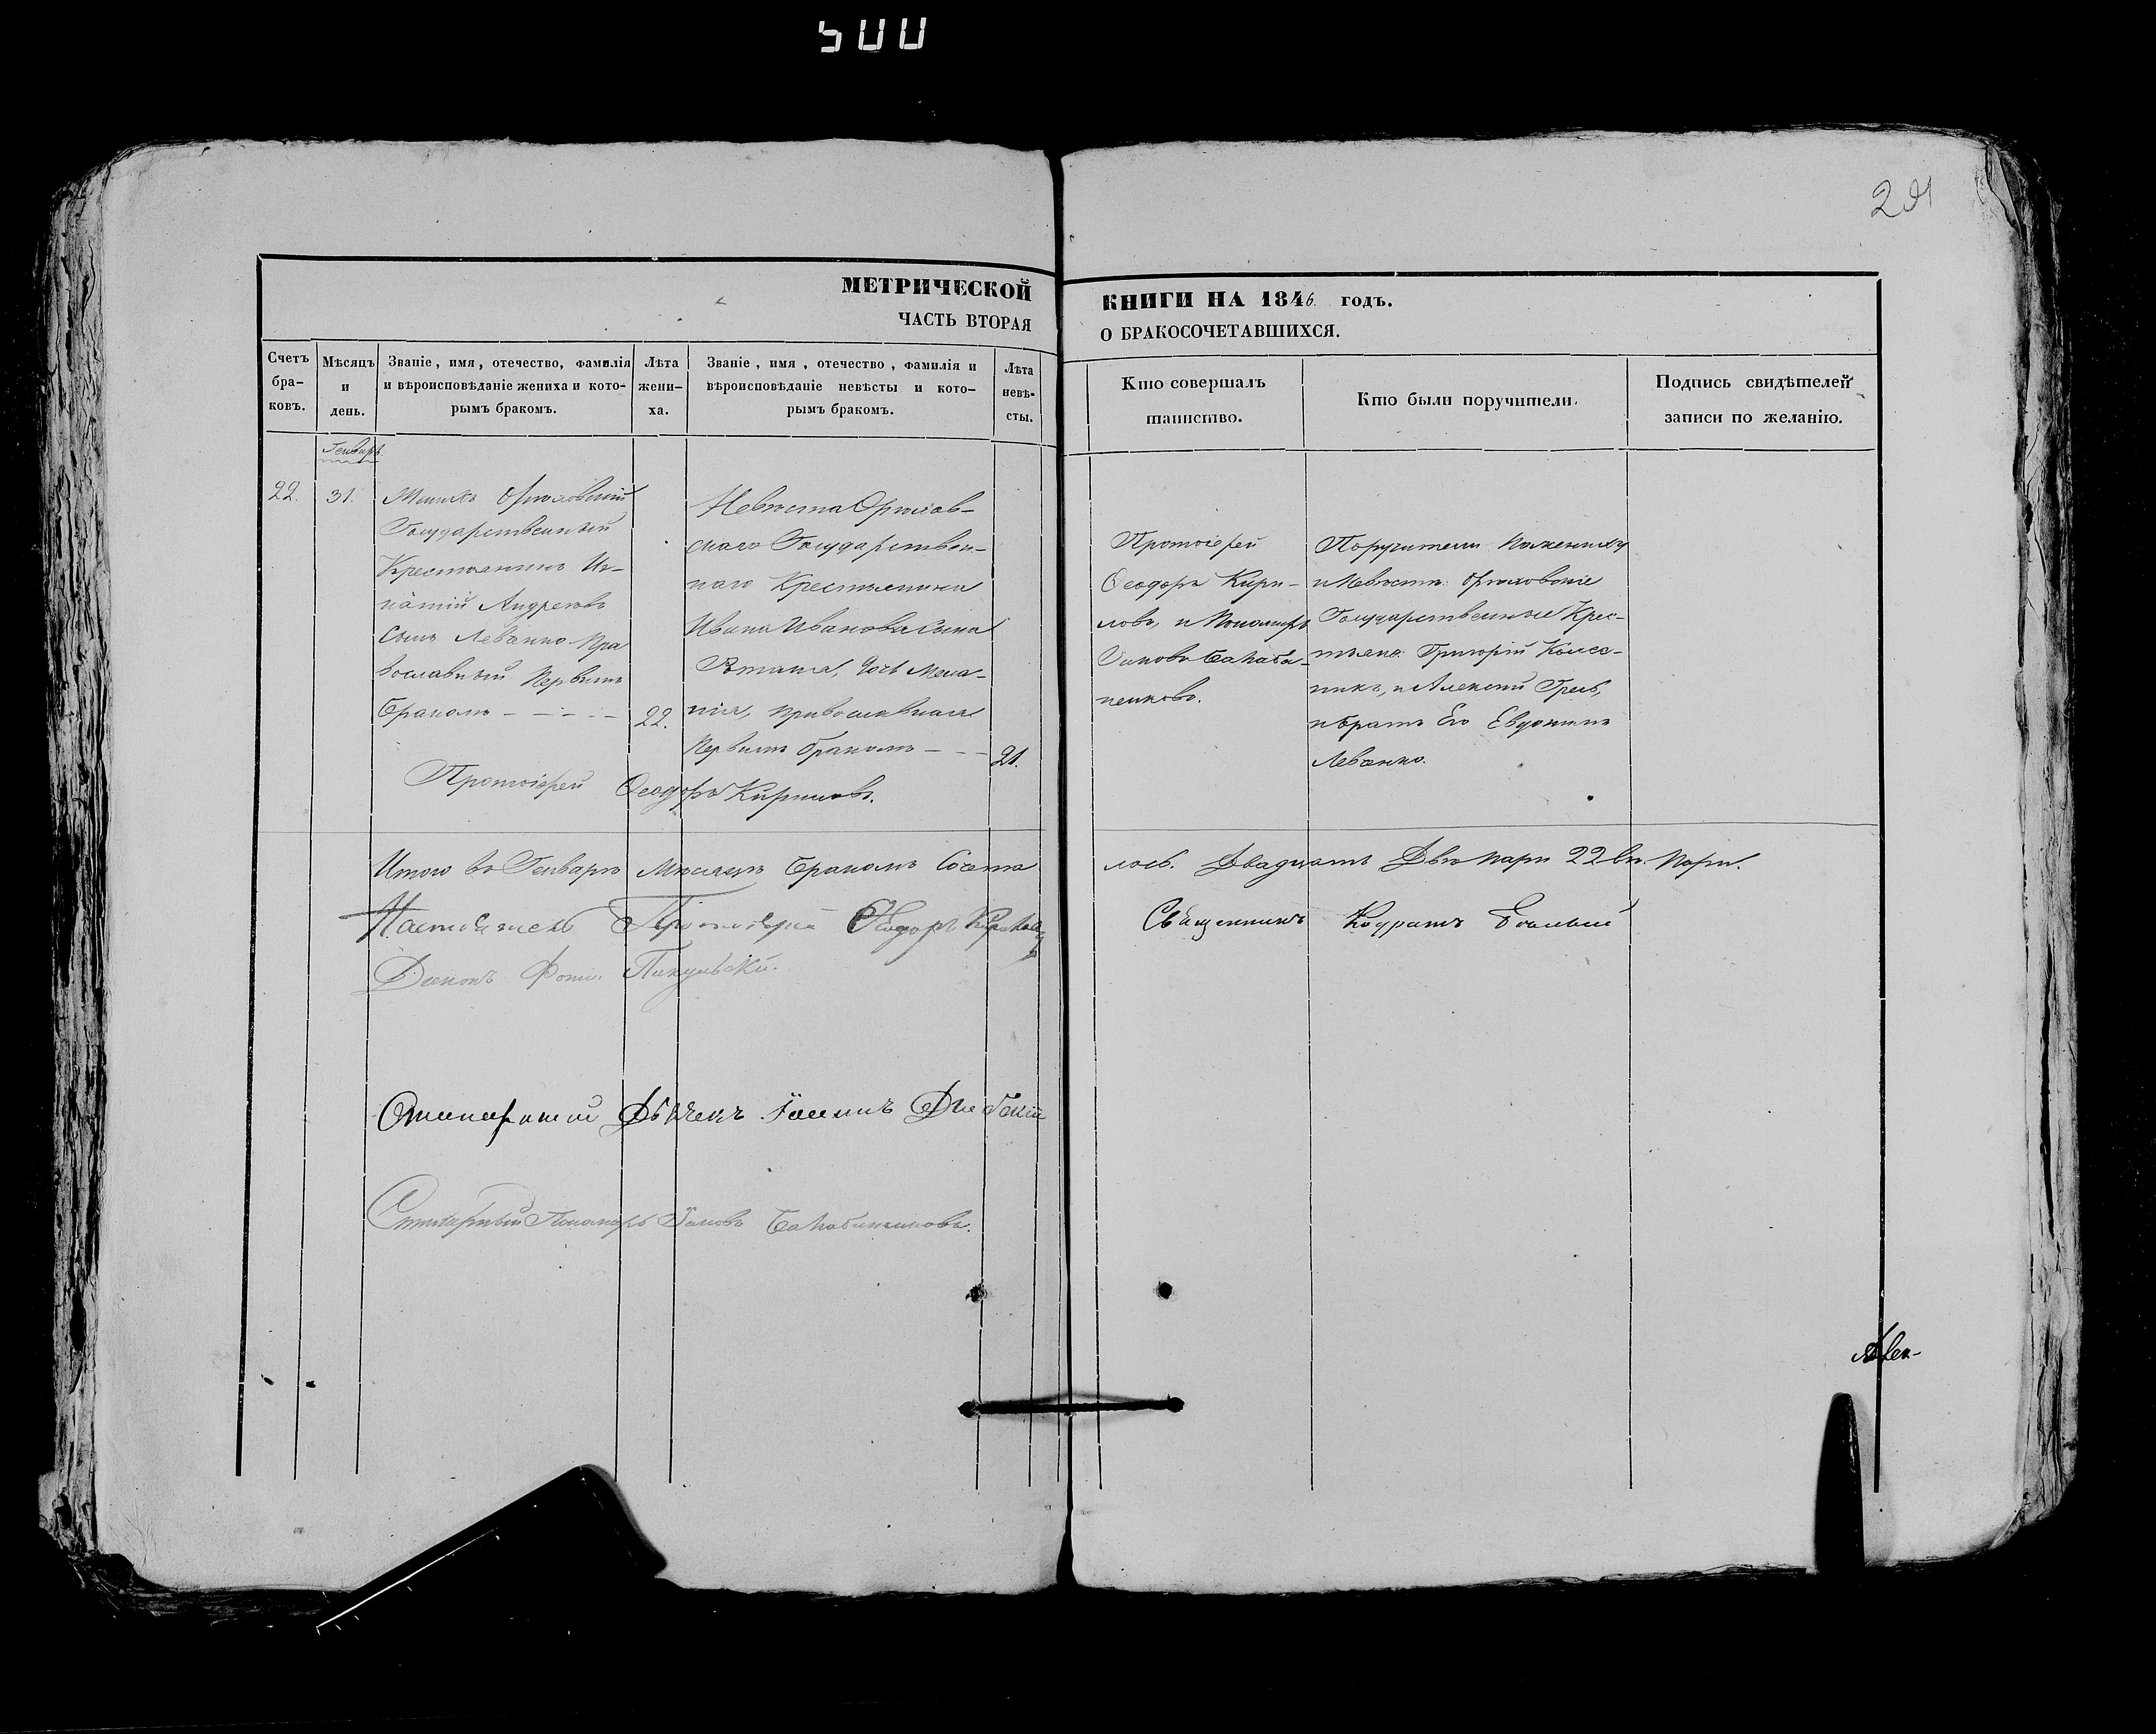 500
291
МЕТРИЧЕСКОЙ
ЧАСТЬ ВТОРАЯ
КНИГИ НА 1846 годъ.
О БРАКОСОЧЕТАВШИХСЯ.
Счетъ бра- ковъ.
Мѣсяцъ и день.
Званіе, имя, отечество, фамилія
и вѣроисповѣданіе жениха и кото-
рымъ бракомъ.
Лѣта жени- ха.
Званіе, имя, отечество, фамилія и
вѣроисповѣданіе невѣсты и кото-
рымъ бракомъ.
Лѣта невѣ- сты.
Кто совершалъ
таинство.
Кто были поручители.
Подпись свидѣтелей
записи по желанію.
Генварь
22.
31.
Женихъ
Государственный
Крестьянинъ Иг-
натій Андреевъ
Сынъ Леванко Пра
вославный Первымъ
бракомъ - - - -
22.
Невѣста
скаго Государствен-
наго Крестьянина
Ивана Иванова Сына
дочь Мела-
нія, православная
Первымъ бракомъ - - -
21.
Протоіерей
Ѳеодоръ Кири-
ловъ, и Пономарь
Іаковъ Балаба-
ненковъ.
Поручители По жениху
и Невѣстѣ
Государственные Крес-
тьяне Григорій Колес-
никъ, и Алексій
и братъ Его
Леванко.
Протоіерей Ѳеодоръ Кириловъ.
Итого въ Генварѣ Мѣсяцѣ бракомъ Сочета
лось. Двадцать Двѣ пары 22 пары.
Настоятель Протоіерей Ѳеодоръ Кириловъ
Священникъ Кодратъ
Діаконъ
Дьячекъ Іоаннъ
Пономарь Іаковъ Балабаненковъ.